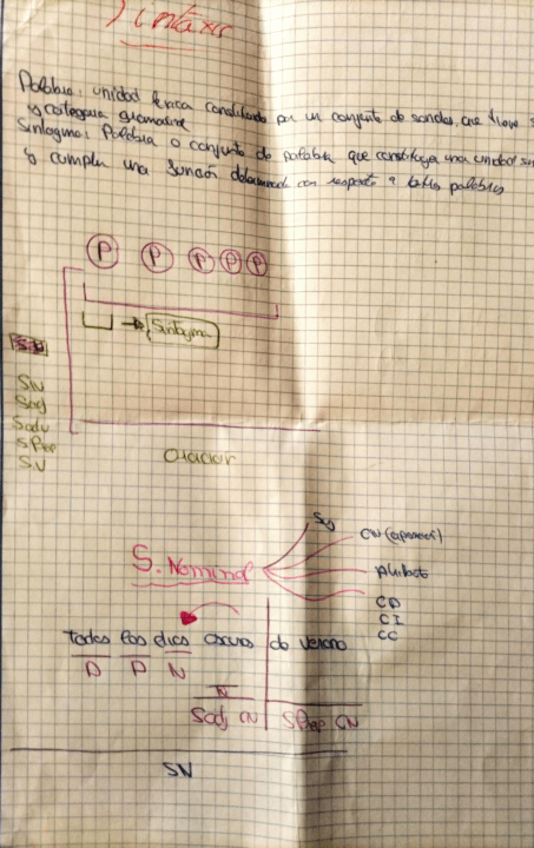 Sintaxis
Palabra: unidad léxica constituida por un conjunto de sonidos, que tiene
y categoría gramatical
Sintagma: Palabra o conjunto de palabra que constituya una unidad
y cumplen una función determinada con respecto a palabras
P P P P P
Sintagma
SN
Sadj
Sadv
SPrep
S.V
Oración
Sj
CN (aposición)
S. Nominal
Atributo
CD
CI
CC
todos los días oscuros de verano
D D N
N
Sadj CN SPrep CN
SN